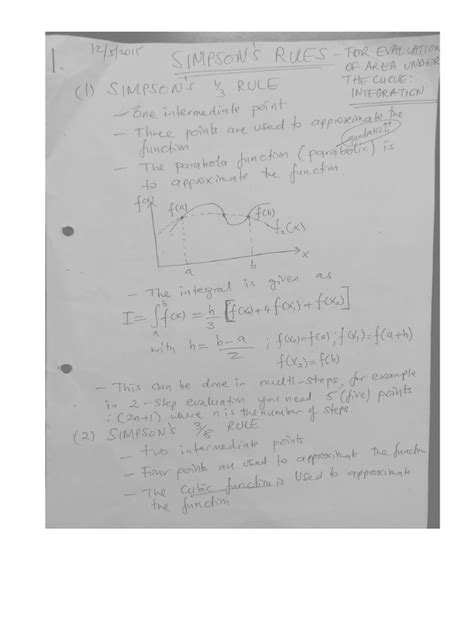 1.
12/5/2015
SIMPSON'S RULES - FOR EVALUATION
OF AREA UNDER
THE CURVE -
INTEGRATION
(1) SIMPSON'S 1/3 RULE
- One intermediate point
- Three points are used to approximate the
function (quadratic)
- The parabola function (parabolic) is
to approximate the function
f(x)
f(a)
f(b)
f₂(x)
x
a
b
- The integral is given as
I = ∫ₐᵇ f(x) = h/3 [f(x₀) + 4f(x₁) + f(x₂)]
with h = b-a/2 ; f(x₀) = f(a) ; f(x₁) = f(a+h)
f(x₂) = f(b)
- This can be done in multi-steps, for example
in 2-step evaluation you need 5 (five) points
: (2n+1) where n is the number of steps
(2) SIMPSON'S 3/8 RULE
- Two intermediate points
- Four points are used to approximate the function
- The cubic function is used to approximate
the function